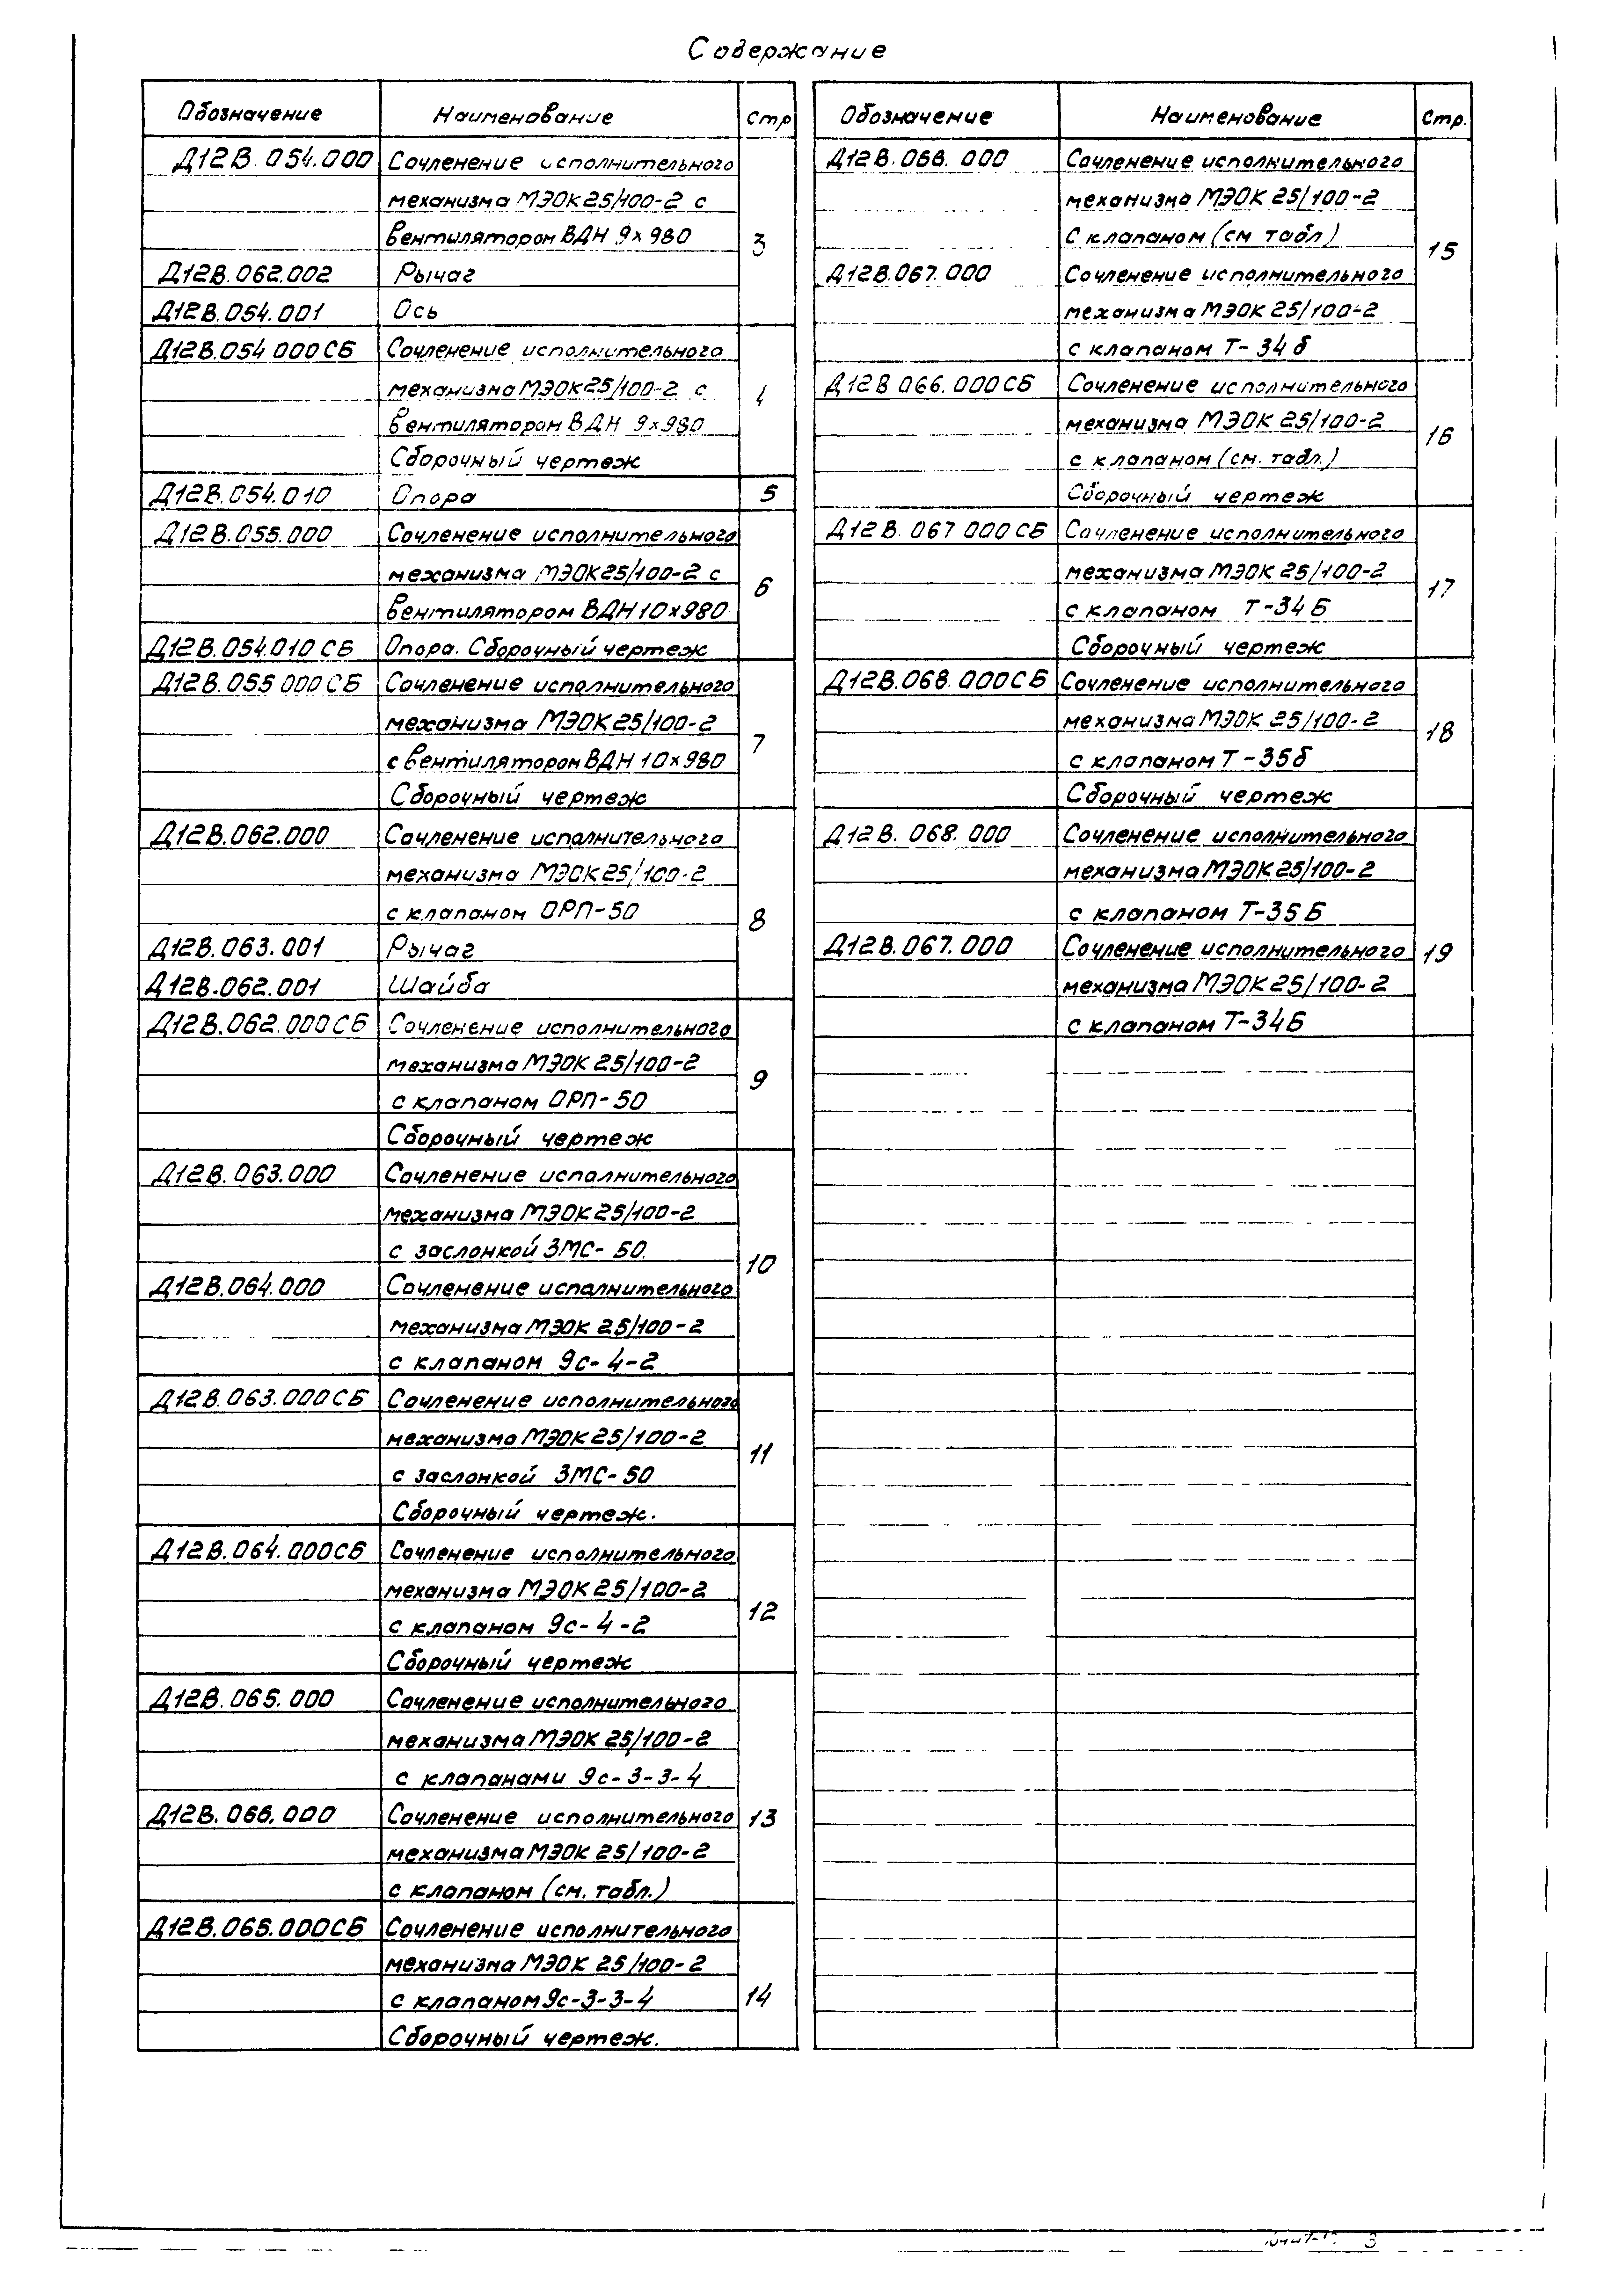 Содержание
Обозначение Наименование Стр
Д12В.054.000 Сочленение исполнительного
механизма МЭОК 25/100-2 с
вентилятором ВДН 9×980
3
Д12В.062.002 Рычаг
Д12В.054.001 Ось
Д12В.054 000 СБ Сочленение исполнительного
механизма МЭОК 25/100-2 с
4
вентилятором ВДН 9×980
Сборочный чертеж
Д12В.054.010 Опора 5
Д12В.055.000 Сочленение исполнительного
механизма МЭОК 25/100-2 с
6
вентилятором ВДН 10×980
Д12В.054.010 СБ Опора. Сборочный чертеж
Д12В.055 000 СБ Сочленение исполнительного
механизма МЭОК 25/100-2
7
с вентилятором ВДН 10×980
Сборочный чертеж
Д12В.062.000 Сочленение исполнительного
механизма МЭОК 25/100-2
с клапаном ОРП-50
8
Д12В.063.001 Рычаг
Д12В.062.001 Шайба
Д12В.062.000 СБ Сочленение исполнительного
механизма МЭОК 25/100-2
9
с клапаном ОРП-50
Сборочный чертеж
Д12В.063.000 Сочленение исполнительного
механизма МЭОК 25/100-2
с заслонкой ЗМС-50.
10
Д12В.064.000 Сочленение исполнительного
механизма МЭОК 25/100-2
с клапаном 9с-4-2
Д12В.063.000 СБ Сочленение исполнительного
механизма МЭОК 25/100-2
11
с заслонкой ЗМС-50
Сборочный чертеж.
Д12В.064.000 СБ Сочленение исполнительного
механизма МЭОК 25/100-2
12
с клапаном 9с-4-2
Сборочный чертеж
Д12В.065.000 Сочленение исполнительного
механизма МЭОК 25/100-2
с клапанами 9с-3-3-4
Д12В.066.000 Сочленение исполнительного 13
механизма МЭОК 25/100-2
с клапаном (см. табл.)
Д12В.065.000 СБ Сочленение исполнительного
механизма МЭОК 25/100-2
с клапаном 9с-3-3-4 14
Сборочный чертеж.
Обозначение Наименование Стр.
Д12В.066.000 Сочленение исполнительного
механизма МЭОК 25/100-2
с клапаном (см табл)
15
Д12В.067.000 Сочленение исполнительного
механизма МЭОК 25/100-2
с клапаном Т-34б
Д12В 066.000 СБ Сочленение исполнительного
механизма МЭОК 25/100-2
16
с клапаном (см. табл.)
Сборочный чертеж
Д12В.067 000 СБ Сочленение исполнительного
механизма МЭОК 25/100-2
17
с клапаном Т-34Б
Сборочный чертеж
Д12В.068.000 СБ Сочленение исполнительного
механизма МЭОК 25/100-2
18
с клапаном Т-35б
Сборочный чертеж
Д12В.068.000 Сочленение исполнительного
механизма МЭОК 25/100-2
с клапаном Т-35Б
Д12В.067.000 Сочленение исполнительного 19
механизма МЭОК 25/100-2
с клапаном Т-34Б
3